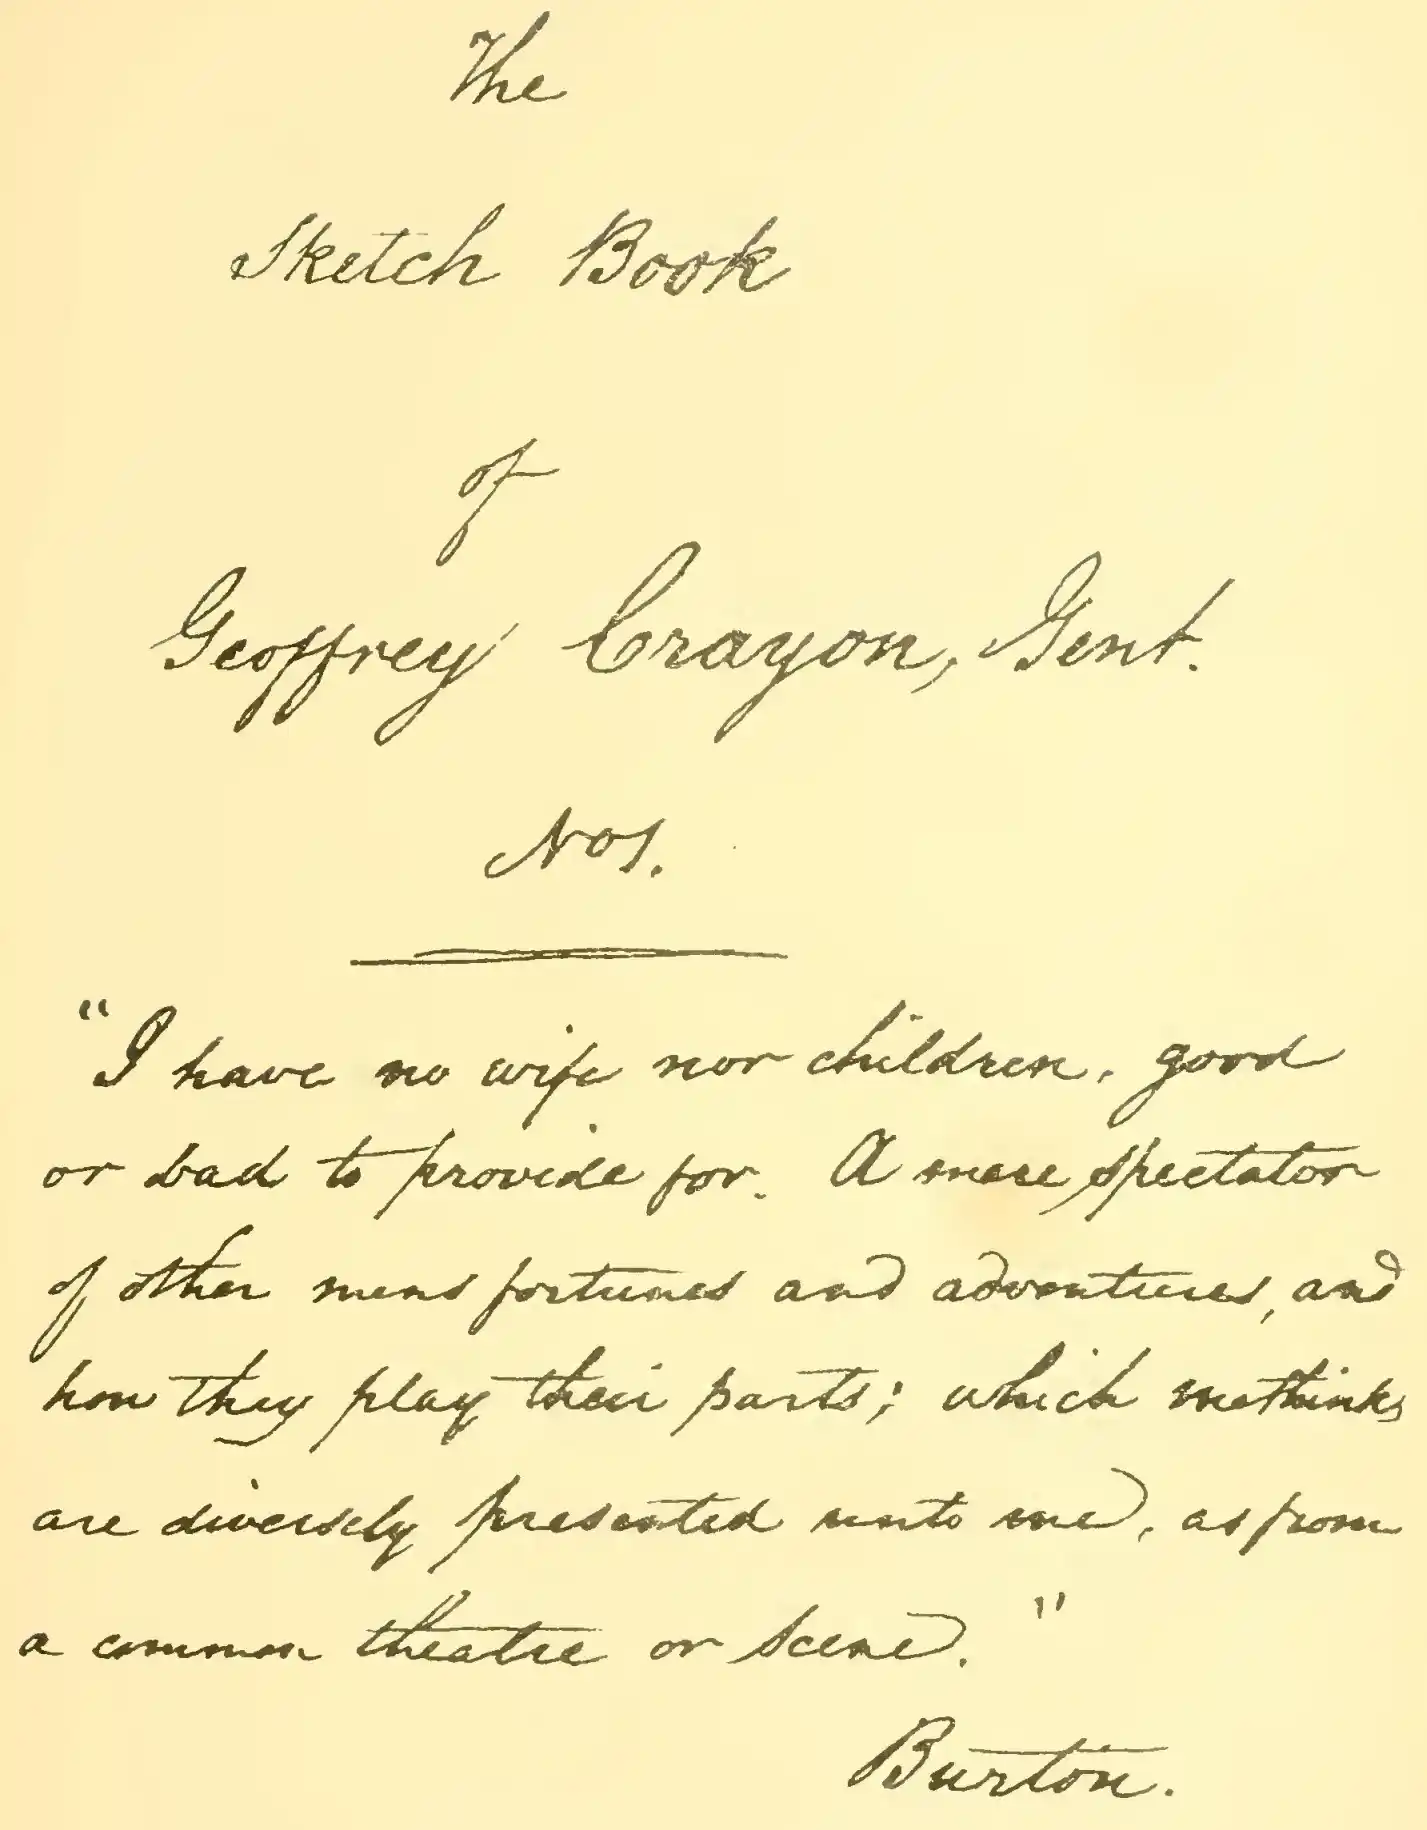 The
Sketch Book
of
Geoffrey Crayon, Gent.
Nos.
"I have no wife nor children, good
or bad to provide for. A mere spectator
of other mens fortunes and adventures, and
how they play their parts; which methinks
are diversely presented unto me, as from
a common theatre or scene."
Burton.